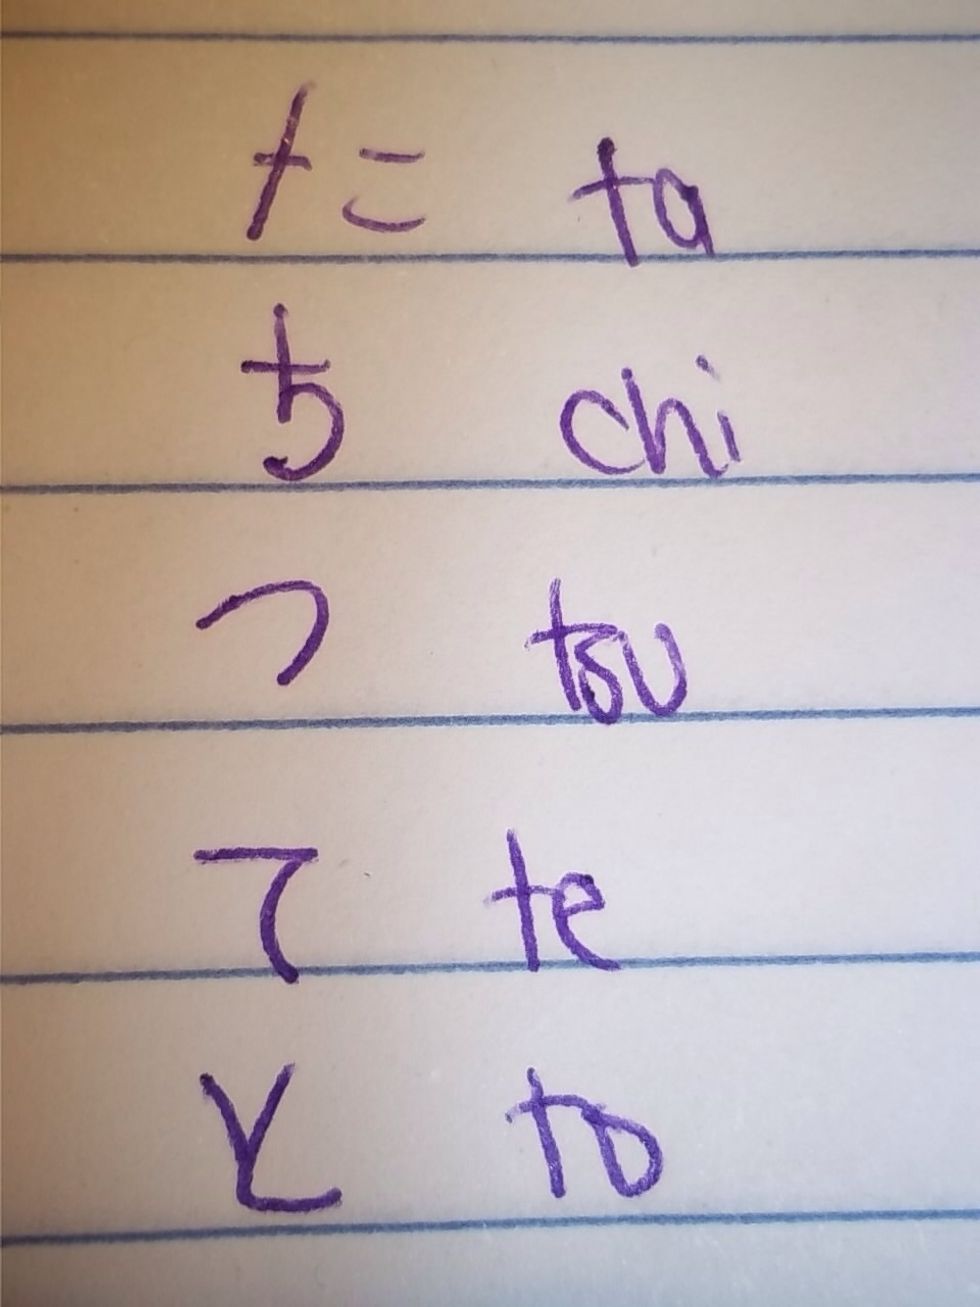 た ta
ち chi
つ tsu
て te
と to